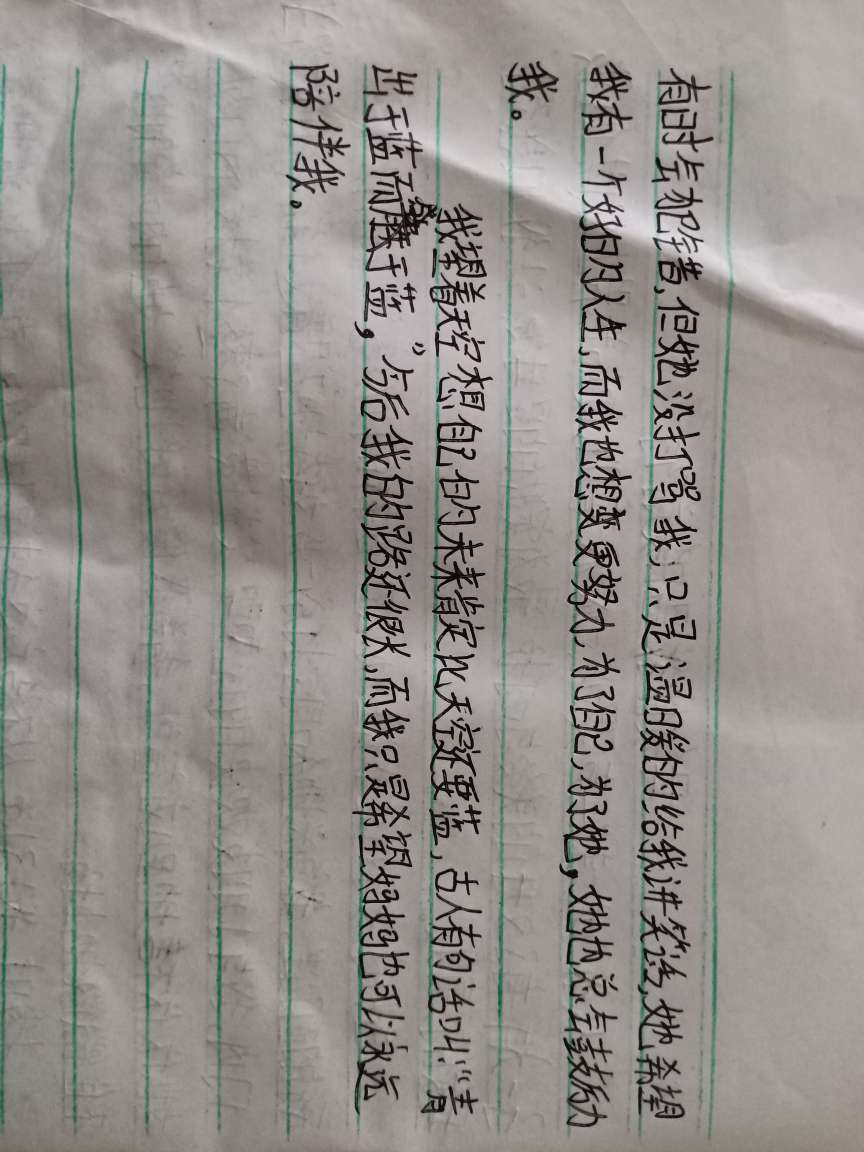 有时会犯错,但她没打骂我,只是温暖的给我讲笑话,她希望
我有一个好的人生,而我也想变更努力,为了自己,为了她,她也总会鼓励
我。
我望着天空想自己的未来肯定比天空还要蓝,古人有句话叫:“青
出于蓝而胜于蓝”,今后我的路还很长,而我只是希望妈妈也可以永远
陪伴我。